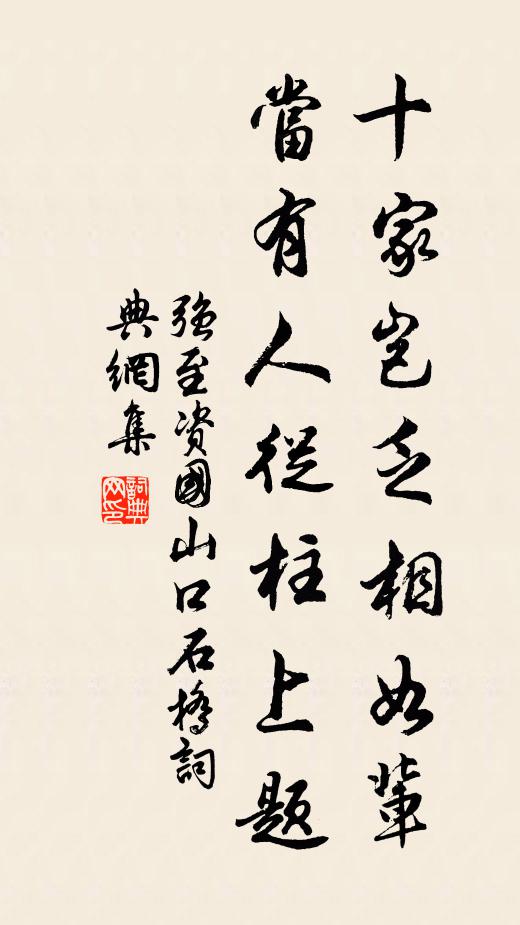 十家岂乏相如輩
當有人從柱上題
強至資國山口石橋詞
典網集
詞典網印